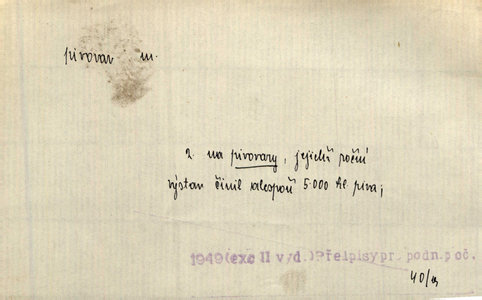 pivovar m.
2. na pivovary, jejichž roční
výstav činil alespoň 5.000 hl piva;
1949(exc II v/d.)Předpisy pr. podn.p oč.
40/